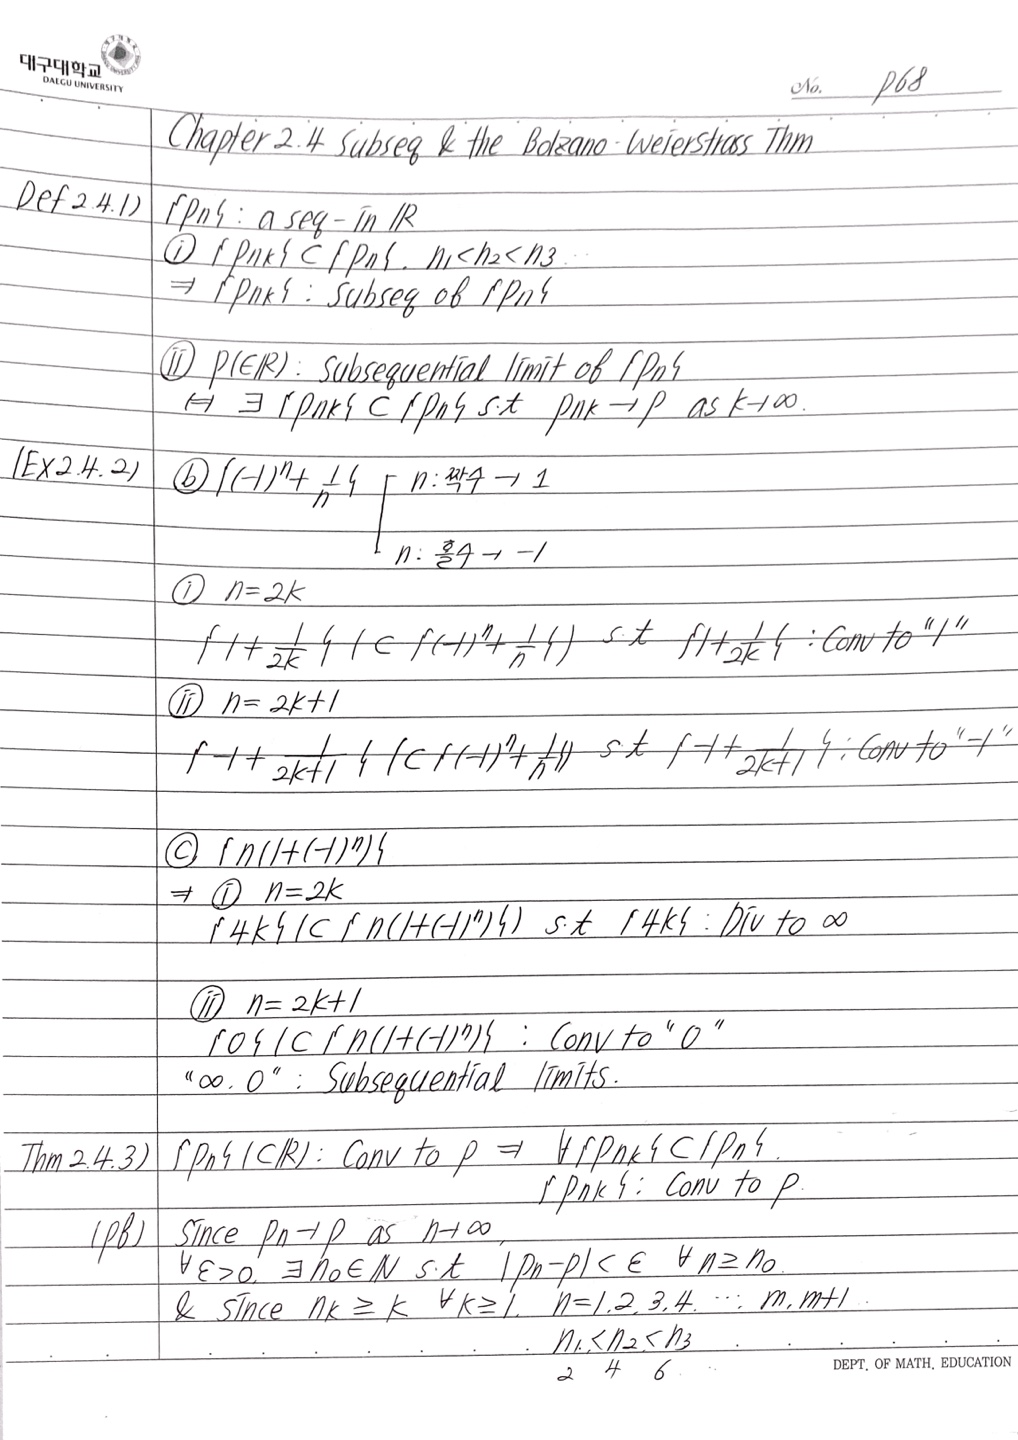 대구대학교
DAEGU UNIVERSITY
No. p68
Chapter 2.4 Subseq & the Bolzano-Weierstrass Thm
Def 2.4.1) {Pn} : a seq- in ℝ
ⓘ {Pnk} ⊂ {Pn}. n1<n2<n3 ...
⇒ {Pnk} : Subseq of {Pn}
ⓘⓘ p(∈ℝ) : Subsequential limit of {Pn}
⇔ ∃ {Pnk} ⊂ {Pn} s.t Pnk → p as k→∞.
(Ex 2.4.2) ⓑ {(-1)^n + 1/n} n:짝수 → 1
n: 홀수 → -1
ⓘ n=2k
{1+ 1/2k} (⊂ {(-1)^n + 1/n}) s.t {1+ 1/2k} : Conv to "1"
ⓘⓘ n= 2k+1
{-1+ 1/2k+1} (⊂ {(-1)^n + 1/n}) s.t {-1+ 1/2k+1} : Conv to "-1"
ⓒ {n(1+(-1)^n)}
⇒ ⓘ n=2k
{4k} (⊂ {n(1+(-1)^n)}) s.t {4k} : Div to ∞
ⓘⓘ n= 2k+1
{0} (⊂ {n(1+(-1)^n)} : Conv to "0"
"∞. 0" : Subsequential limits.
Thm 2.4.3) {Pn} (⊂ℝ) : Conv to p ⇒ ∀{Pnk} ⊂ {Pn}.
{Pnk} : Conv to p.
(pf) Since Pn→p as n→∞,
∀ε>0. ∃n0∈ℕ s.t |Pn-p|<ε ∀n≥n0.
& since nk ≥ k ∀k≥1. n=1.2.3.4. ... m, m+1 ..
n1<n2<n3
2 4 6 ..
DEPT. OF MATH. EDUCATION